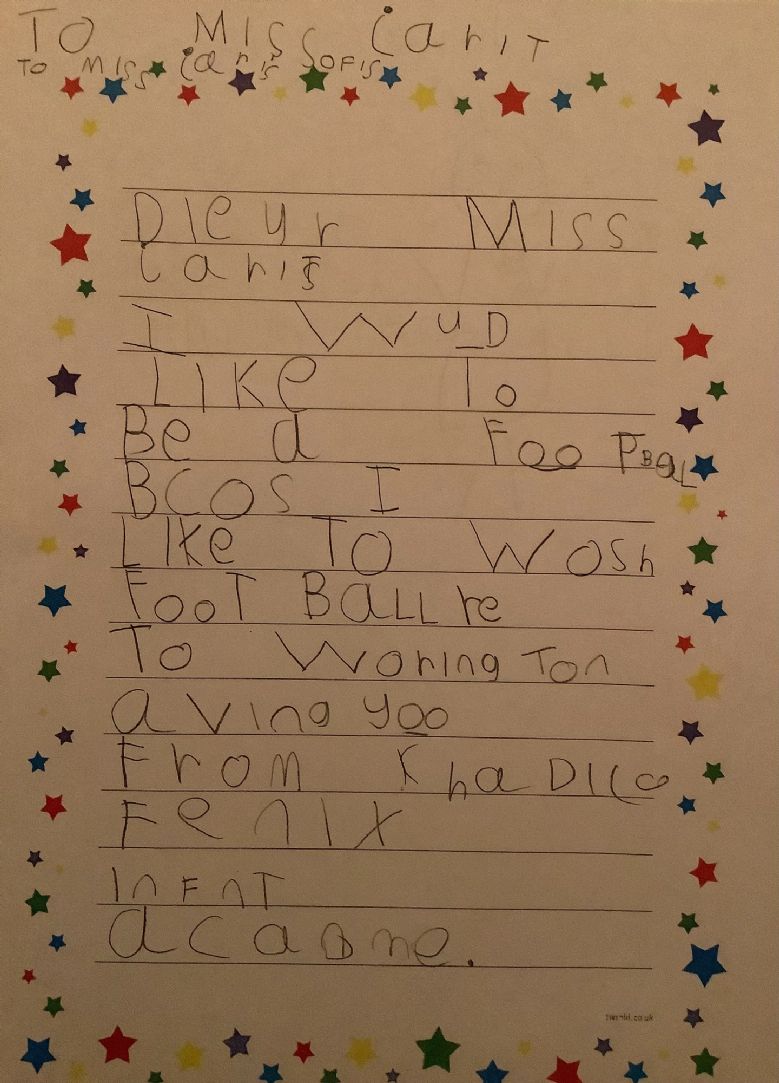 TO MISS CarIT
TO MISS Caris SOFIS
DIeyr MISS
Caris
I WuD
LIKe To
Be a FooTBaL
BCOS I
LIke TO WOSh
FooT BaLL re
To Woring Ton
aving yoo
From KhaDICo
FenIX
InFnT
acaDme.
twinkl.co.uk